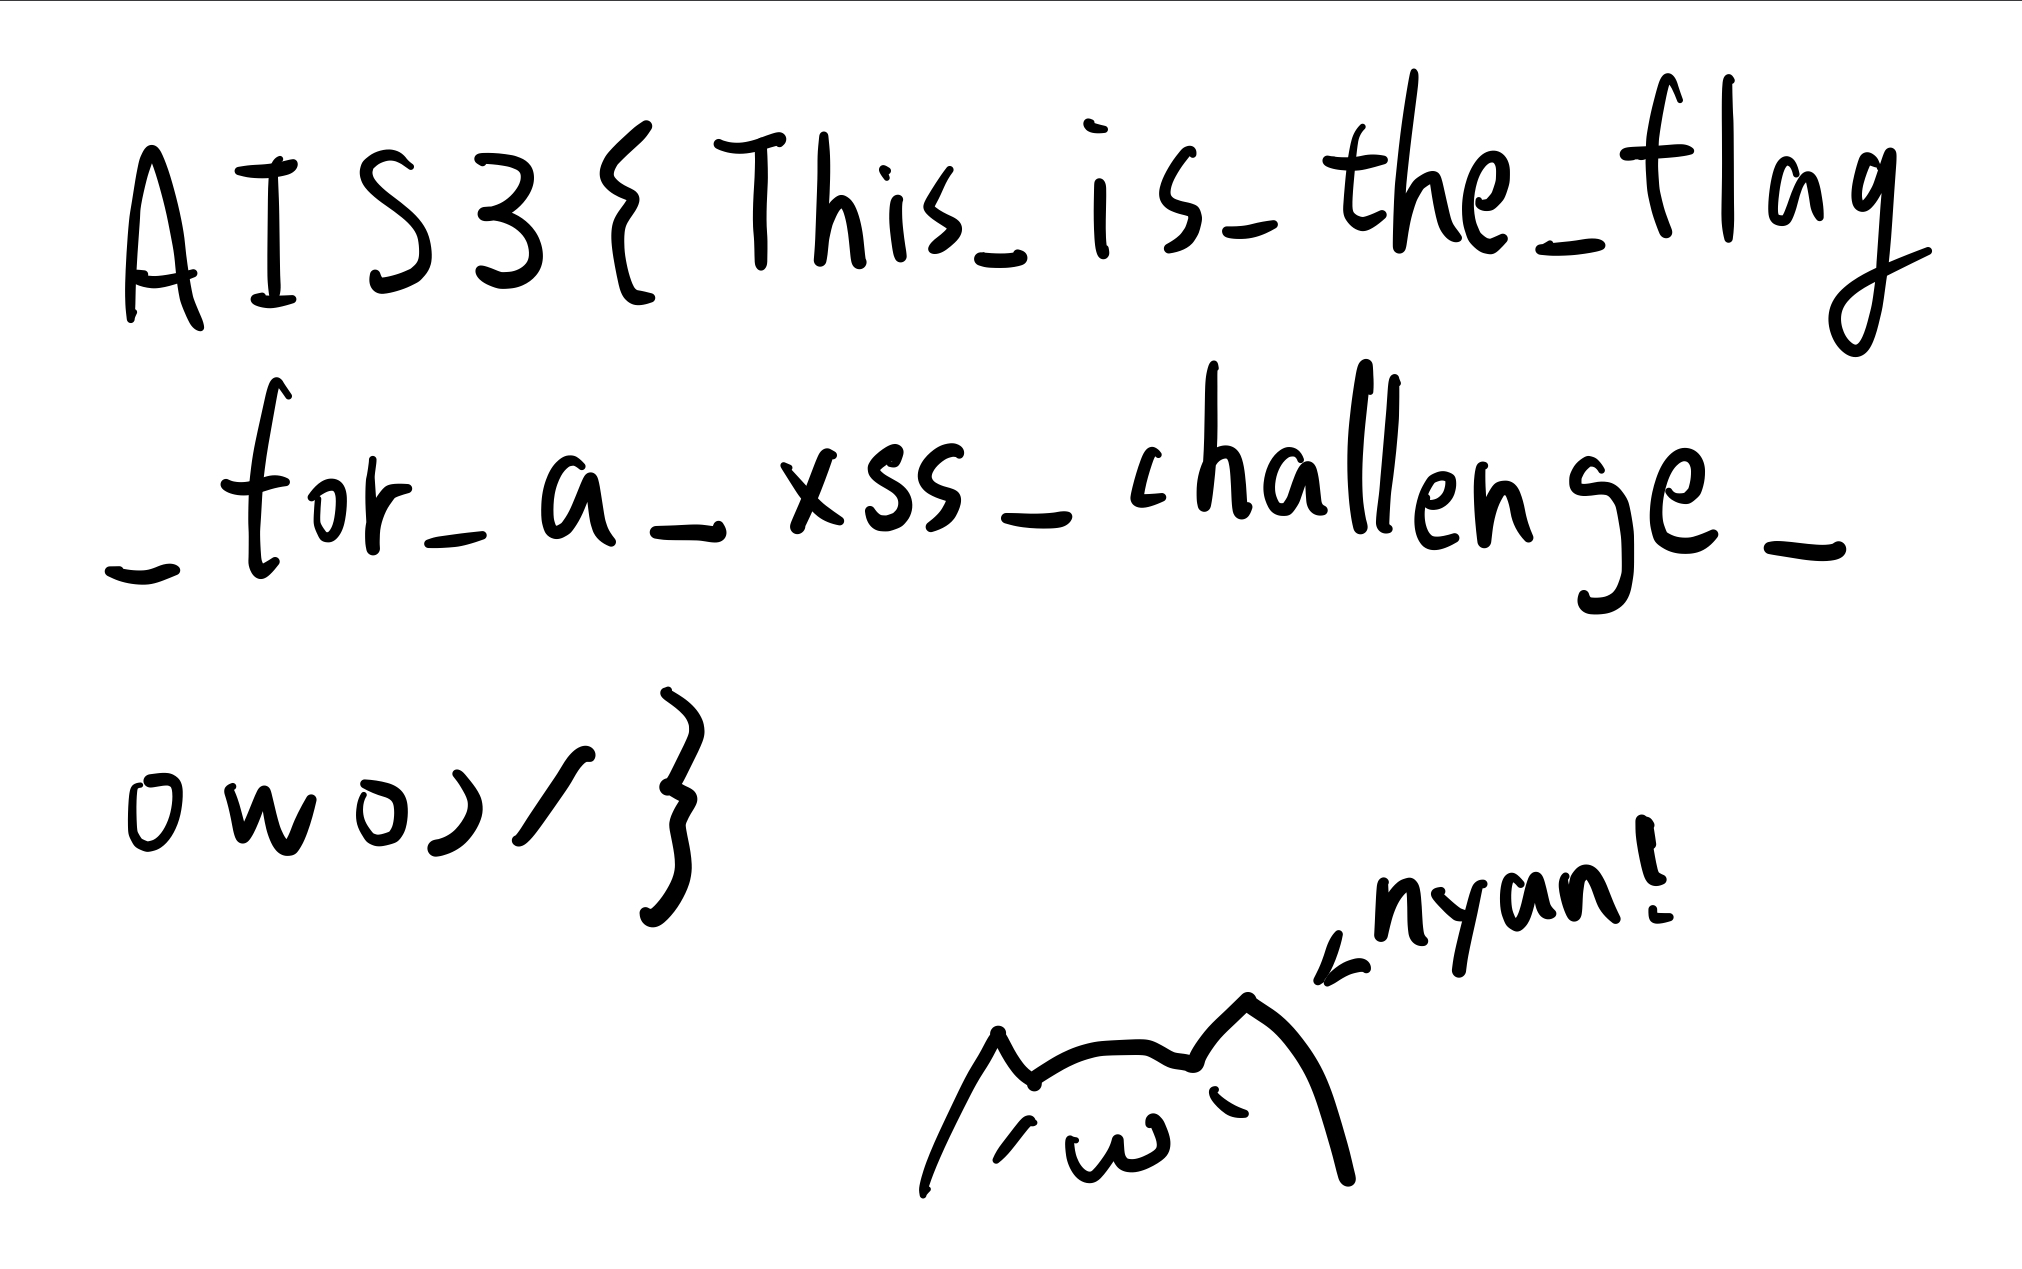 AIS3{This_is_the_flag
_for_a_xss_challenge_
owo)/}
nyan!